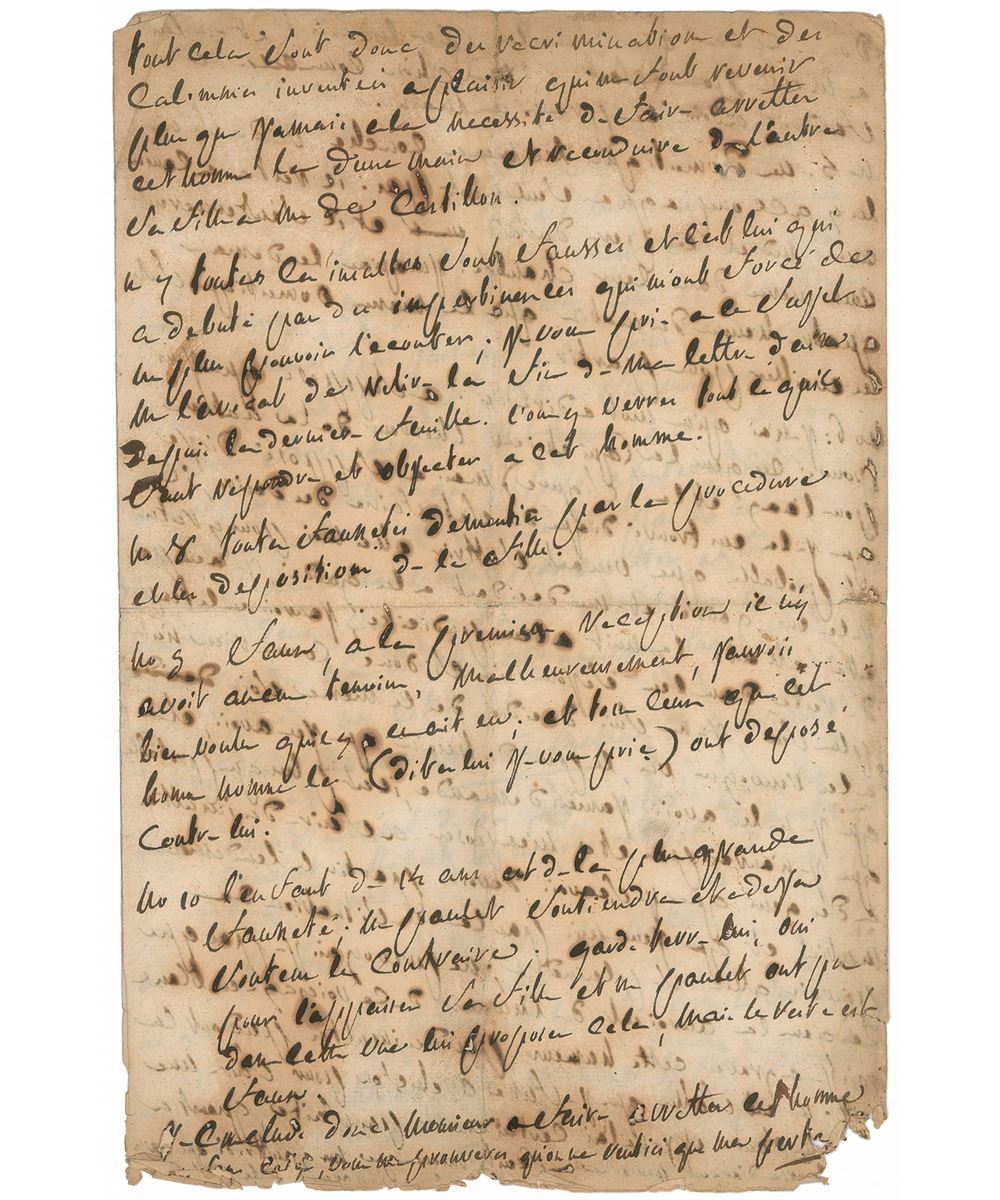 tout cela sont donc des recrimination et des
Calomnies inventées a plaisir qui me font revenir
plus que jamais a la necessité de faire arretter
cet homme la d'une main et reconduire de l'autre
sa fille a Mr de Castillon.
n 7 toutes les insultes sont fausses et c'est lui qui
a debuté par des impertinences qui m'ont forcé de
ne plus pouvoir l'ecouter; je vous prie a ce sujet
Mr l'avocat de relire la fin de ma lettre d'hier
depuis la derniere feuille. vous y verres tout ce qu'il
faut repondre et objecter a cet homme.
no 8 toutes faussetés dementies par la procedure
et les depositions de la fille.
no 9 faux, a la premiere reception il n'y
avoit aucun temoin, malheureusement, j'aurois
bien voulu qu'il y en eut eu; et tous ceux que cet
homme nomme la (dites lui je vous prie) ont deposé
Contre lui.
no 10 l'enfant de 14 ans est de la plus grande
fausseté; Mr paulet soutiendra et a deja
soutenu le contraire; garde terre lui, oui
pour l'appaiser sa fille et Mr paulet ont pu
dans cette vue lui proposer cela; mais le reste est
faux.
Je Conclus donc Monsieur a faire arretter cet homme
sans cela, vous me prouveres qu'on ne veut ici que ma perte.